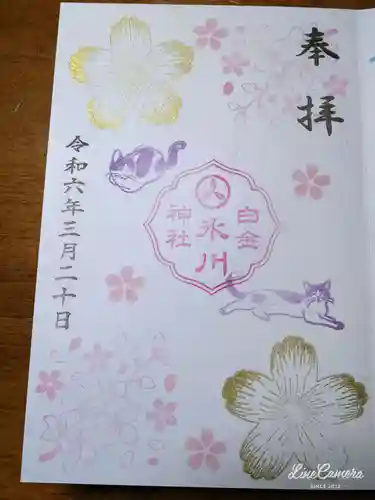 奉拝
白金
氷川
神社
令和六年三月二十日
LINE Camera
SINCE 2012